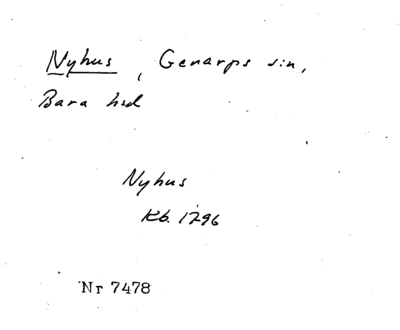 Nyhus, Genarps sn,
Bara hsd
Nyhus
Kb. 1796
Nr 7478